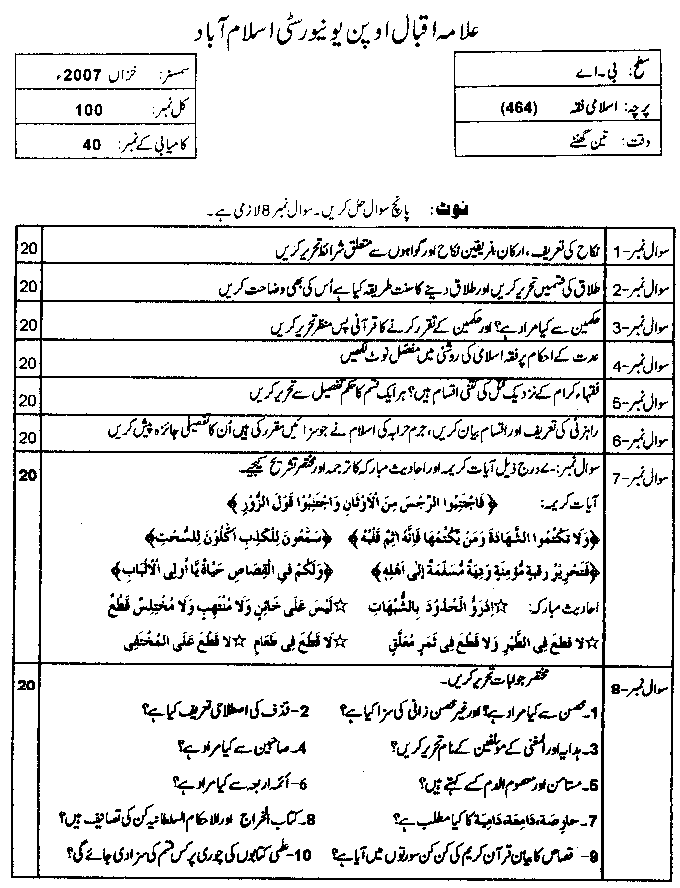 علامہ اقبال اوپن یونیورسٹی اسلام آباد
سطح: بی۔اے
پرچہ: اسلامی فقہ (464)
وقت: تین گھنٹے
سمسٹر: خزاں 2007ء
کل نمبر: 100
کامیابی کے نمبر: 40
نوٹ: پانچ سوال حل کریں۔ سوال نمبر 8 لازمی ہے۔
سوال نمبر-1 نکاح کی تعریف، ارکان، فریقین نکاح اور گواہوں سے متعلق شرائط تحریر کریں 20
سوال نمبر-2 طلاق کی قسمیں تحریر کریں اور طلاق دینے کا سنت طریقہ کیا ہے اُس کی بھی وضاحت کریں 20
سوال نمبر-3 حکمین سے کیا مراد ہے؟ اور حکمین کے تقرر کرنے کا قرآنی پس منظر تحریر کریں 20
سوال نمبر-4 عدت کے احکام پر فقہ اسلامی کی روشنی میں مفصل نوٹ لکھیں 20
سوال نمبر-5 فقہاء کرام کے نزدیک قتل کی کتنی اقسام ہیں؟ ہر ایک قسم کا حکم تفصیل سے تحریر کریں 20
سوال نمبر-6 راہزنی کی تعریف اور اقسام بیان کریں، جرم حرابہ کی اسلام نے جو سزائیں مقرر کی ہیں اُن کا تفصیلی جائزہ پیش کریں 20
سوال نمبر-7 سوال نمبر:-۷ درج ذیل آیات کریمہ اور احادیث مبارکہ کا ترجمہ اور مختصر تشریح کیجیے۔ 20
آیات کریمہ: ﴿فَاجْتَنِبُوا الرِّجْسَ مِنَ الْاَوْثَانِ وَاجْتَنِبُوْا قَوْلَ الزُّوْرِ﴾
﴿وَلَا تَكْتُمُوا الشَّهَادَةَ وَمَنْ يَّكْتُمْهَا فَاِنَّهٗ اٰثِمٌ قَلْبُهٗ﴾ ﴿سَمّٰعُوْنَ لِلْكَذِبِ اَكّٰلُوْنَ لِلسُّحْتِ﴾
﴿فَتَحْرِيْرُ رَقَبَةٍ مُّؤْمِنَةٍ وَدِيَةٌ مُّسَلَّمَةٌ اِلٰى اَهْلِهٖ﴾ ﴿وَلَكُمْ فِي الْقِصَاصِ حَيٰوةٌ يّٰٓاُولِى الْاَلْبَابِ﴾
احادیث مبارکہ: ☆اِدْرَؤُ الْحُدُوْدَ بِالشُّبْهَاتِ ☆لَيْسَ عَلٰى خَائِنٍ وَلَا مُنْتَهِبٍ وَلَا مُخْتَلِسٍ قَطْعٌ
☆لَا قَطْعَ فِى الطَّيْرِ وَلَا قَطْعَ فِى ثَمَرٍ مُعَلَّقٍ ☆لَا قَطْعَ فِى طَعَامٍ ☆لَا قَطْعَ عَلَى الْمُخْتَفِى
سوال نمبر-8 مختصر جوابات تحریر کریں۔ 20
1۔ محصن سے کیا مراد ہے؟ اور غیر محصن زانی کی سزا کیا ہے؟ 2- قذف کی اصطلاحی تعریف کیا ہے؟
3۔ ہدایہ اور المغنی کے مؤلفین کے نام تحریر کریں؟ 4۔ صاحبین سے کیا مراد ہے؟
5۔ مستامن اور معصوم الدم کسے کہتے ہیں؟ 6- آئمہ اربعہ سے کیا مراد ہے؟
7۔ حارصۃ، دامعۃ، دامیۃ کا کیا مطلب ہے؟ 8۔ کتاب الخراج اور الاحکام السلطانیہ کن کی تصانیف ہیں؟
9- قصاص کا بیان قرآن کریم کی کن کن سورتوں میں آیا ہے؟ 10- علمی کتابوں کی چوری پر کس قسم کی سزا دی جائے گی؟